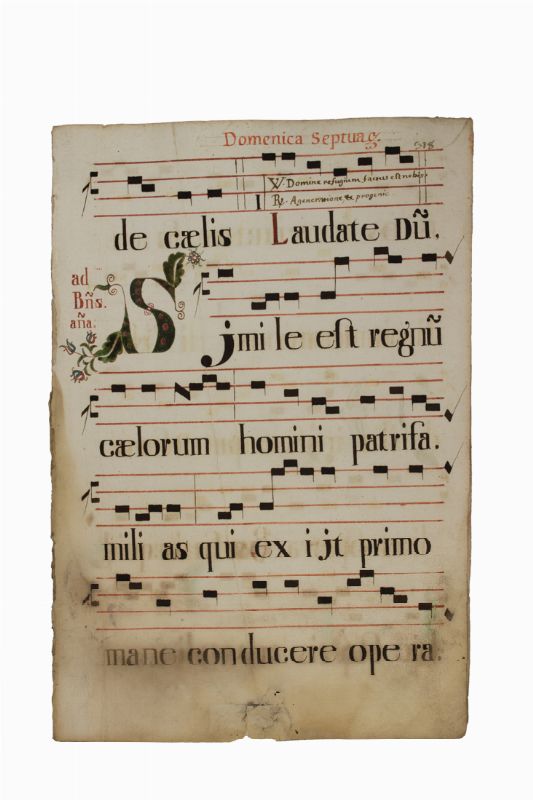 Domenica Septuag
318
W. Domine refugium factus est nobis.
R. A generatione et progenie
de cælis Laudate Dũ.
ad
Bñs.
aña.
Sjmi le est regnũ
cælorum homini patrifa.
mili as qui ex ijt primo
mane conducere ope ra.